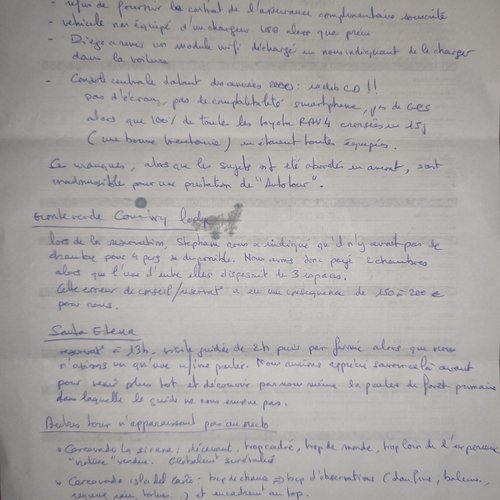 - refus de fournir le contrat de l'assurance complémentaire souscrite
- véhicule non équipé d'un chargeur USB alors que prévu
- Diego a remis un module wifi déchargé en nous indiquant de le charger
dans la voiture
- Console centrale datant des années 2000 : radio CD !!
pas d'écran, pas de compatibilité smartphone, pas de GPS
alors que 100% de toutes les toyota RAV4 croisées en 15j
(une bonne trentaine) en étaient toutes équipées.
Ces manques, alors que les sujets ont été abordés en amont, sont
inadmissible pour une prestation de "Autotour".
Monteverde Country lodge
lors de la réservation, Stephane nous a indiqué qu'il n'y avait pas de
chambre pour 4 pers disponible. Nous avons donc payé 2 chambres
alors que l'une d'entre elles disposait de 3 espaces.
Cette erreur de conseil/ a eu une conséquence de 150 à 200 €
pour nous.
Santa Elena
à 13h, visite guidée de 2h puis parc fermé alors que nous
n'avions vu qu'une partie. Nous aurions apprécié savoir cela avant
pour venir plus tot et découvrir par nous même la partie de forêt primaire
dans laquelle le guide ne nous emmène pas.
tour n'apparaissant pas au recto
• Corcovado la sirena : décevant, trop cadré, trop de monde, trop loin de l'expérience
"nature" vendue. Globalement surévalué
• Corcovado isla del Caño : top de chance => top d'observations (dauphins, baleines,
requins, tortues) et encadrement au top.